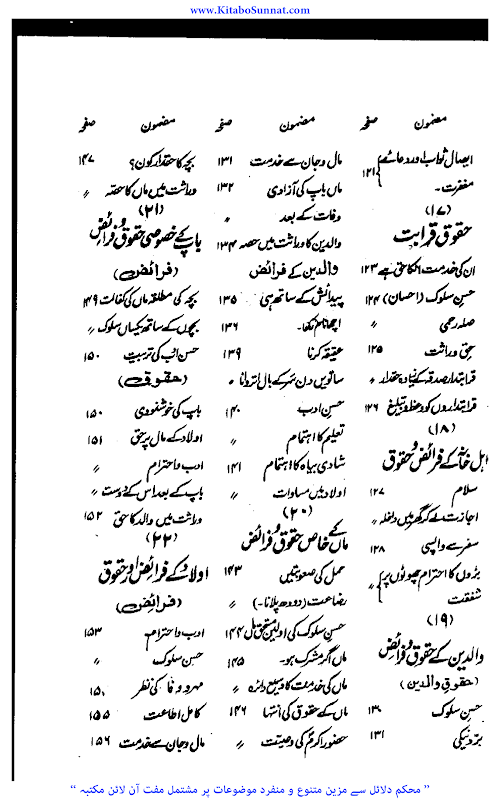 www.KitaboSunnat.com
مضمون صفحہ
ایصال ثواب اور دعائے مغفرت۔ ۱۲۱
(۱۷)
حقوق قرابت
ان کی خدمت انکا حق ہے ۱۲۳
حسن سلوک (احسان) ۱۲۴
صلہ رحمی 〃
حق وراثت ۱۲۵
قرابتدار صدقہ کے زیادہ حقدار 〃
قرابتداروں کو وعظ و تبلیغ ۱۲۶
(۱۸)
اہل خانہ کے فرائض و حقوق
سلام ۱۲۷
اجازت لے کر گھر میں داخلہ 〃
سفر سے واپسی ۱۲۸
بڑوں کا احترام چھوٹوں پر شفقت 〃
(۱۹)
والدین کے حقوق و فرائض
(حقوق والدین)
حسن سلوک ۱۳۰
بڑی نیکی ۱۳۱
مضمون صفحہ
مال و جان سے خدمت ۱۳۱
ماں باپ کی آزادی ۱۳۲
وفات کے بعد 〃
والدین کا وراثت میں حصہ ۱۳۴
والدین کے فرائض
پیدائش کے ساتھ ہی ۱۳۵
اچھا نام رکھنا۔ ۱۳۶
عقیقہ کرنا ۱۳۹
ساتویں دن سر کے بال اتروانا 〃
حسن ادب ۱۴۰
تعلیم کا اہتمام 〃
شادی بیاہ کا اہتمام ۱۴۱
اولاد میں مساوات 〃
(۲۰)
ماں کے خاص حقوق و فرائض
حمل کی صعوبتیں ۱۴۳
رضاعت (دودھ پلانا۔) 〃
حسن سلوک کی اولین مستحق ماں ۱۴۴
ماں اگر مشرک ہو۔ ۱۴۵
ماں کی خدمت کا وسیع دائرہ 〃
ماں کے حقوق کی انتہا ۱۴۶
حضور اکرمؐ کی وصیت 〃
مضمون صفحہ
بچہ کا حقدار کون؟ ۱۴۷
وراثت میں ماں کا حصہ 〃
(۲۱)
باپ کے خصوصی حقوق و فرائض
(فرائض)
بچہ کی مطلقہ ماں کی کفالت ۱۴۹
بچوں کے ساتھ یکساں سلوک 〃
حسن ادب کی تربیت ۱۵۰
(حقوق)
باپ کی خوشنودی ۱۵۰
اولاد کے مال پر حق ۱۵۱
ادب و احترام 〃
باپ کے بعد اس کے دوست 〃
وراثت میں والد کا حق ۱۵۲
(۲۲)
اولاد کے فرائض اور حقوق
(فرائض)
ادب و احترام ۱۵۳
حسن سلوک 〃
مہر و وفا کی نظر
کامل اطاعت ۱۵۵
مال و جان سے خدمت ۱۵۶
” محکم دلائل سے مزین متنوع و منفرد موضوعات پر مشتمل مفت آن لائن مکتبہ “